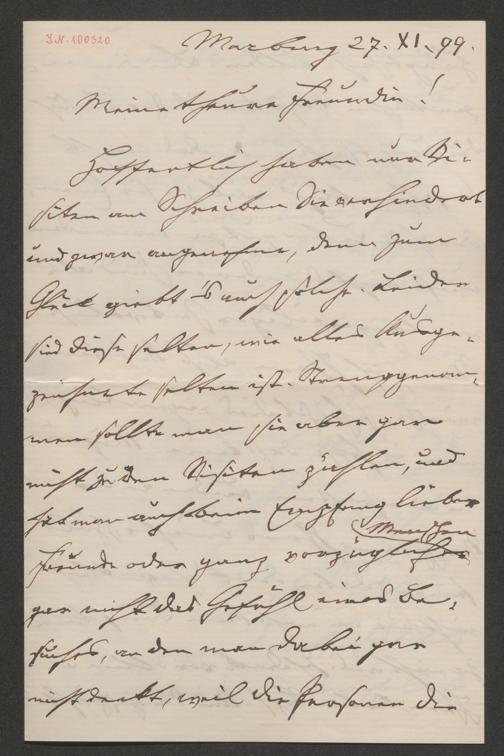 J.N. 100320
Marburg 27. XI. 99.
Meine theure Freundin!
Hoffentlich haben nur Vi-
siten am Schreiben Sie verhindert
und zwar angenehme, denn zum
Glück giebt 's auch solche. Leider
sind diese selten, wie alles Ausge-
zeichnete selten ist. Strenggenom-
men sollte man sie aber gar
nicht zu den Visiten zählen, und
hat man auch beim Empfang lieber
Freunde oder ganz vorzüglicher
Menschen
gar nicht das Gefühl eines Be-
suches, an den man dabei gar
nicht denkt, weil die Personen die